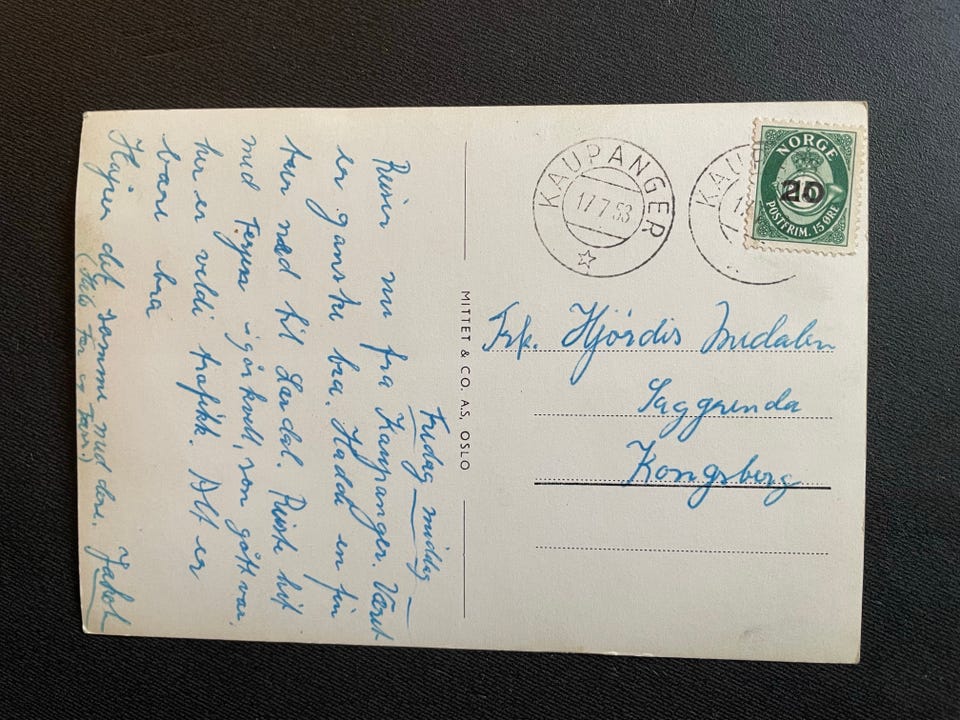 Fredag middag —
Reiser nu fra Kaupanger. Været
er ganske bra. Hadde en fin
tur ned til Lærdal. Reiste hit
med ferjen igår kveld, som gått var,
her er veldi trafikk. Alt er
bare bra
Håper det samme med dere. Jakob
(Stib Far og Mor.)
MITTET & CO. A.S, OSLO
KAUPANGER
17.7.53
KAUP
17
NORGE
20
POSTFRIM. 15 ØRE
Frk. Hjördis Medalen
Saggrenda
Kongsberg